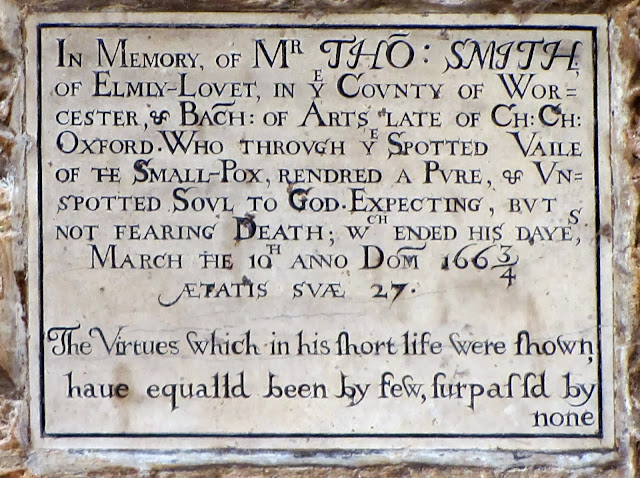 In Memory, of Mr THŌ: SMITH,
of Elmly-Lovet, in ye Covnty of Wor=
cester, & Bach: of Arts, late of Ch: Ch:
Oxford. Who throvgh ye Spotted Vaile
of the Small-Pox, rendred a Pvre, & Vn=
spotted Sovl to God. Expecting, bvt
not fearing Death; wch ended his dayes,
March the 10th anno Dom̄ 166¾
ætatis svæ 27.
The Virtues which in his ſhort life were ſhown,
haue equalld been by few, ſurpaſſd by
none